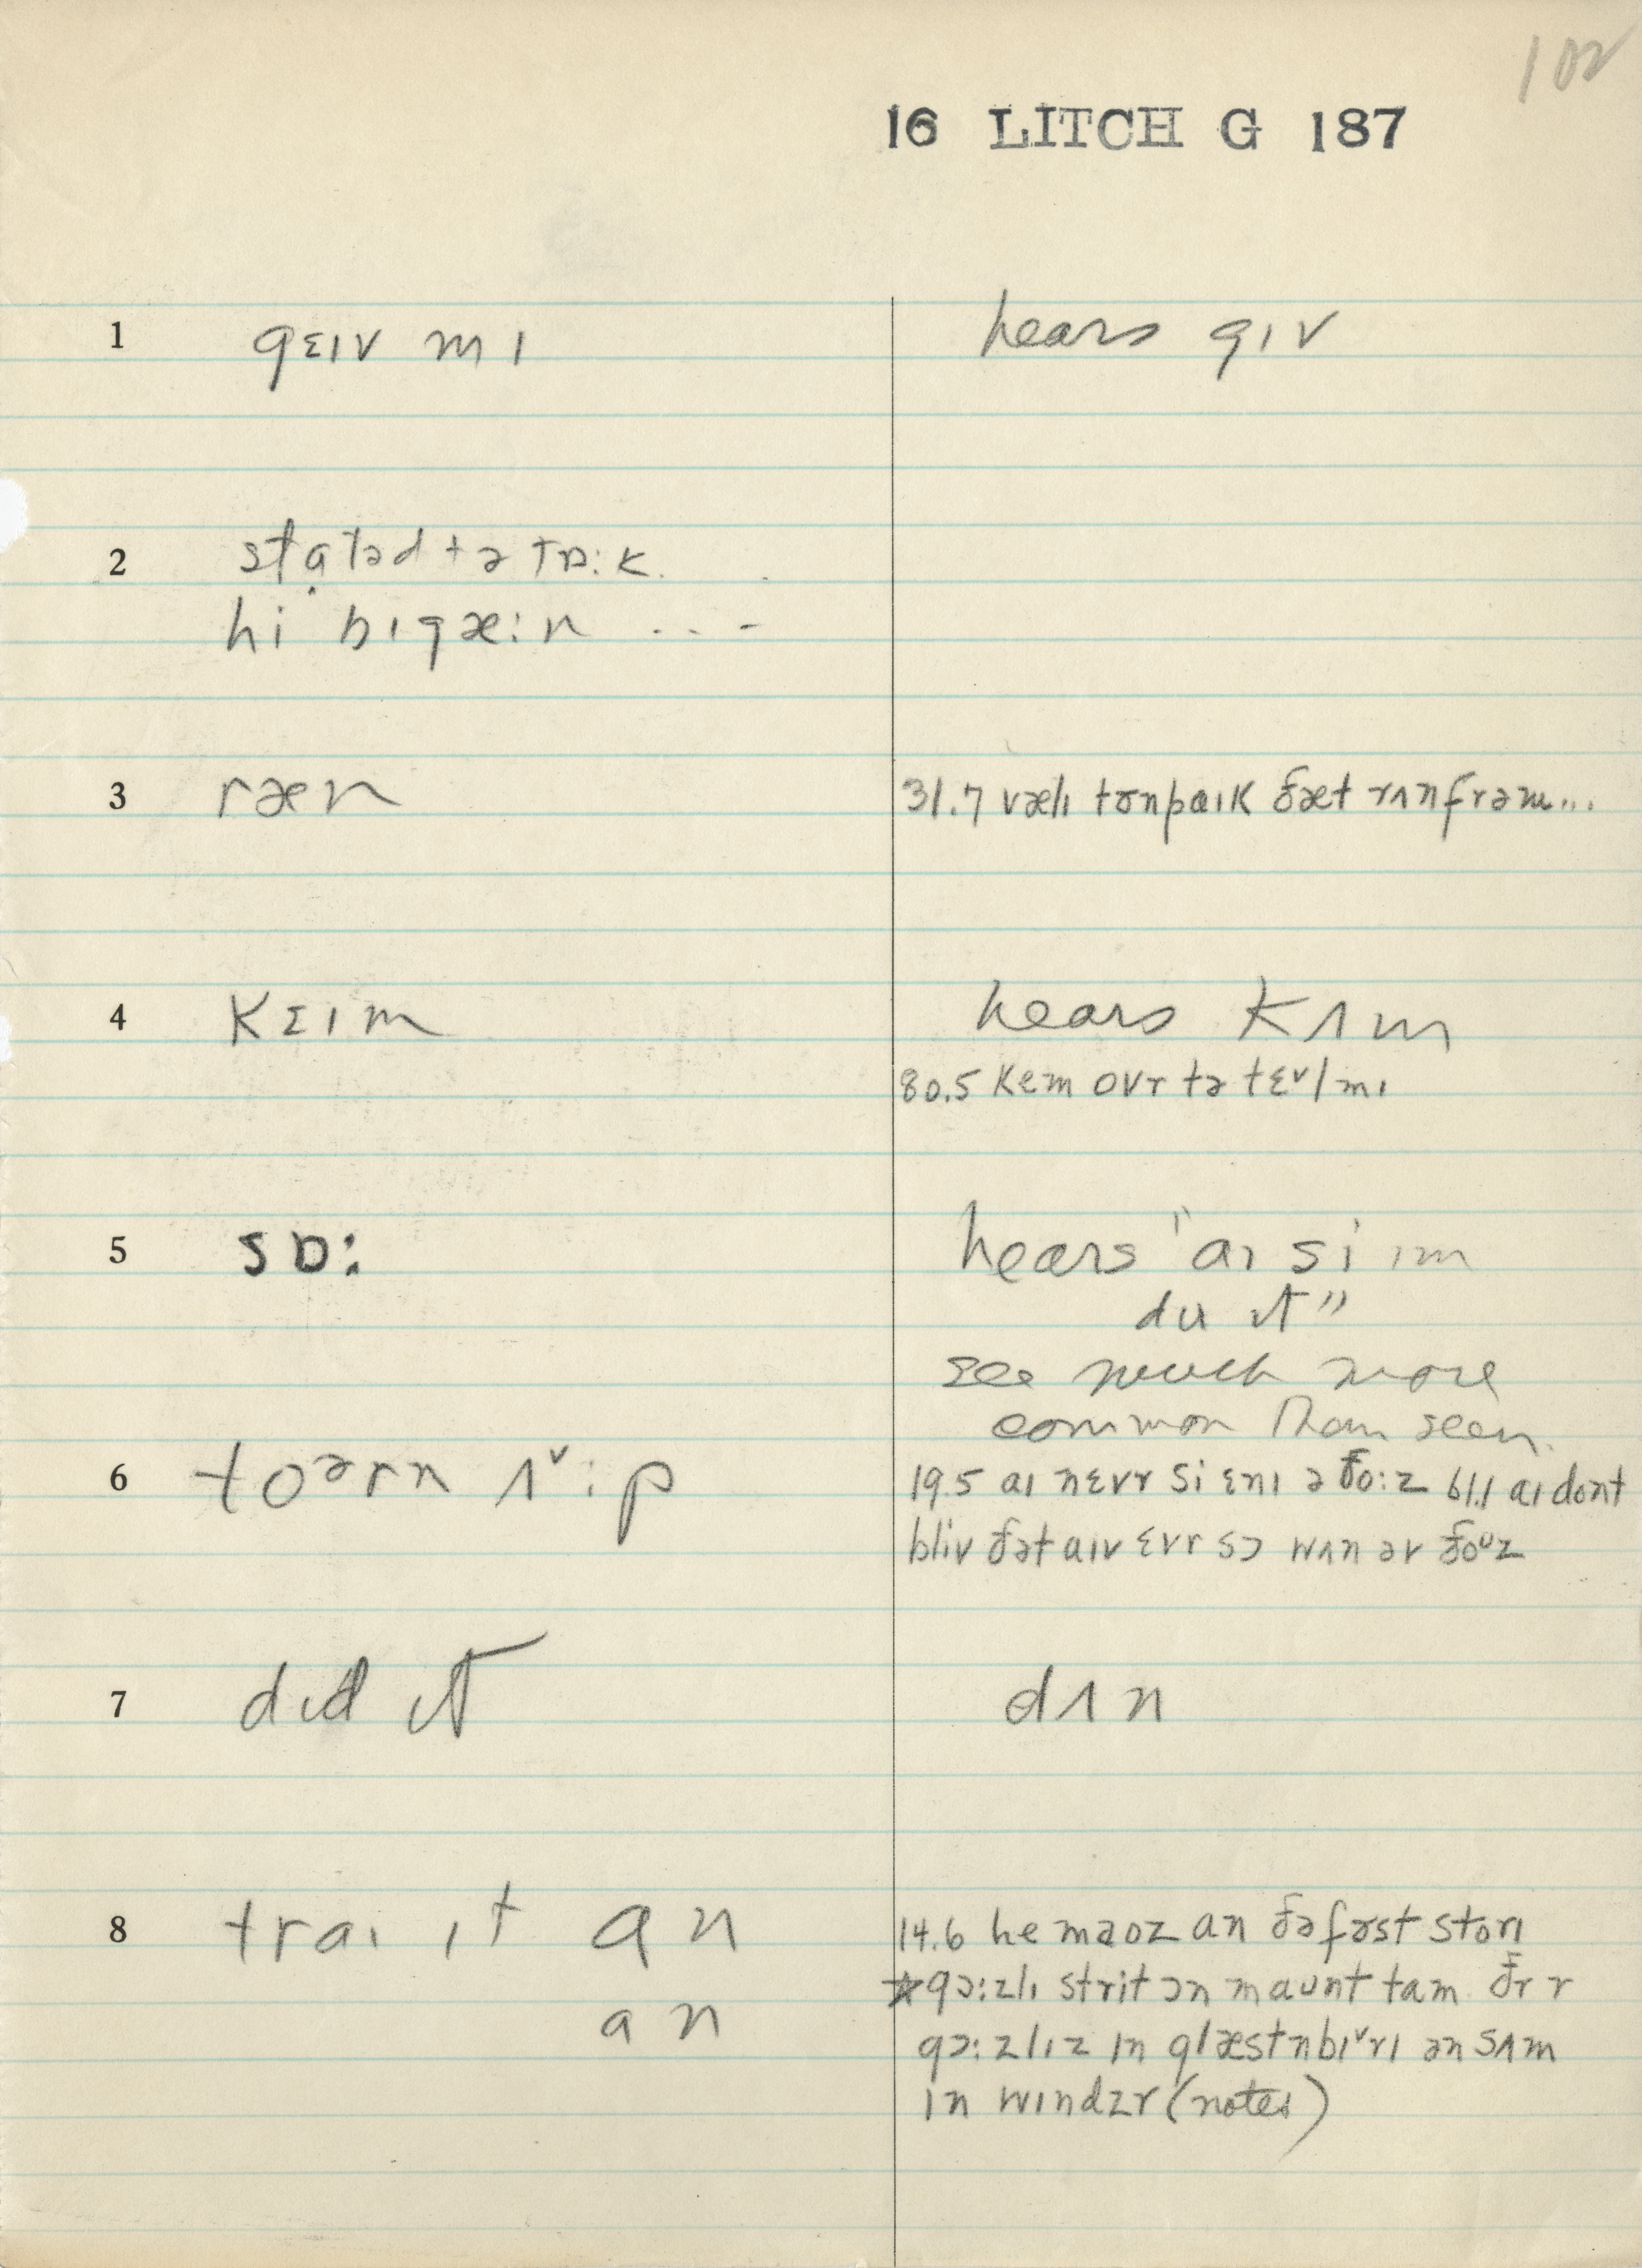 102
16 LITCH G 187
1 gɛɪv mɪ hears gɪv
2 stɑtəd tə tɒːk
hi bɪgæːn ...-
3 ræn 31.7 vælɪ tɜnpaɪk ðæt rʌnfrəm...
4 kɛɪm hears kʌm
80.5 kem ovr tə tɛᵛl mɪ
5 sɒː hears "aɪ si ɪm
du ɪt"
see much more
common than seen.
6 toərn ʌᵛːp 19.5 aɪ nɛvr si ɛnɪ ə ðoːz 61.1 aɪ dont
bliv ðət aɪv ɛvr sɔ wʌn əv ðoᶷz
7 dɪd ɪt dʌn
8 traɪ ɪt ɑn 14.6 he maoz an ðə fəst stori
an ☆gɔːzlɪ strit ɔn maunt tam ðr r
gɔːzlɪz ɪn glæstnbɪᵛrɪ ən sʌm
ɪn wɪndzr (notes)